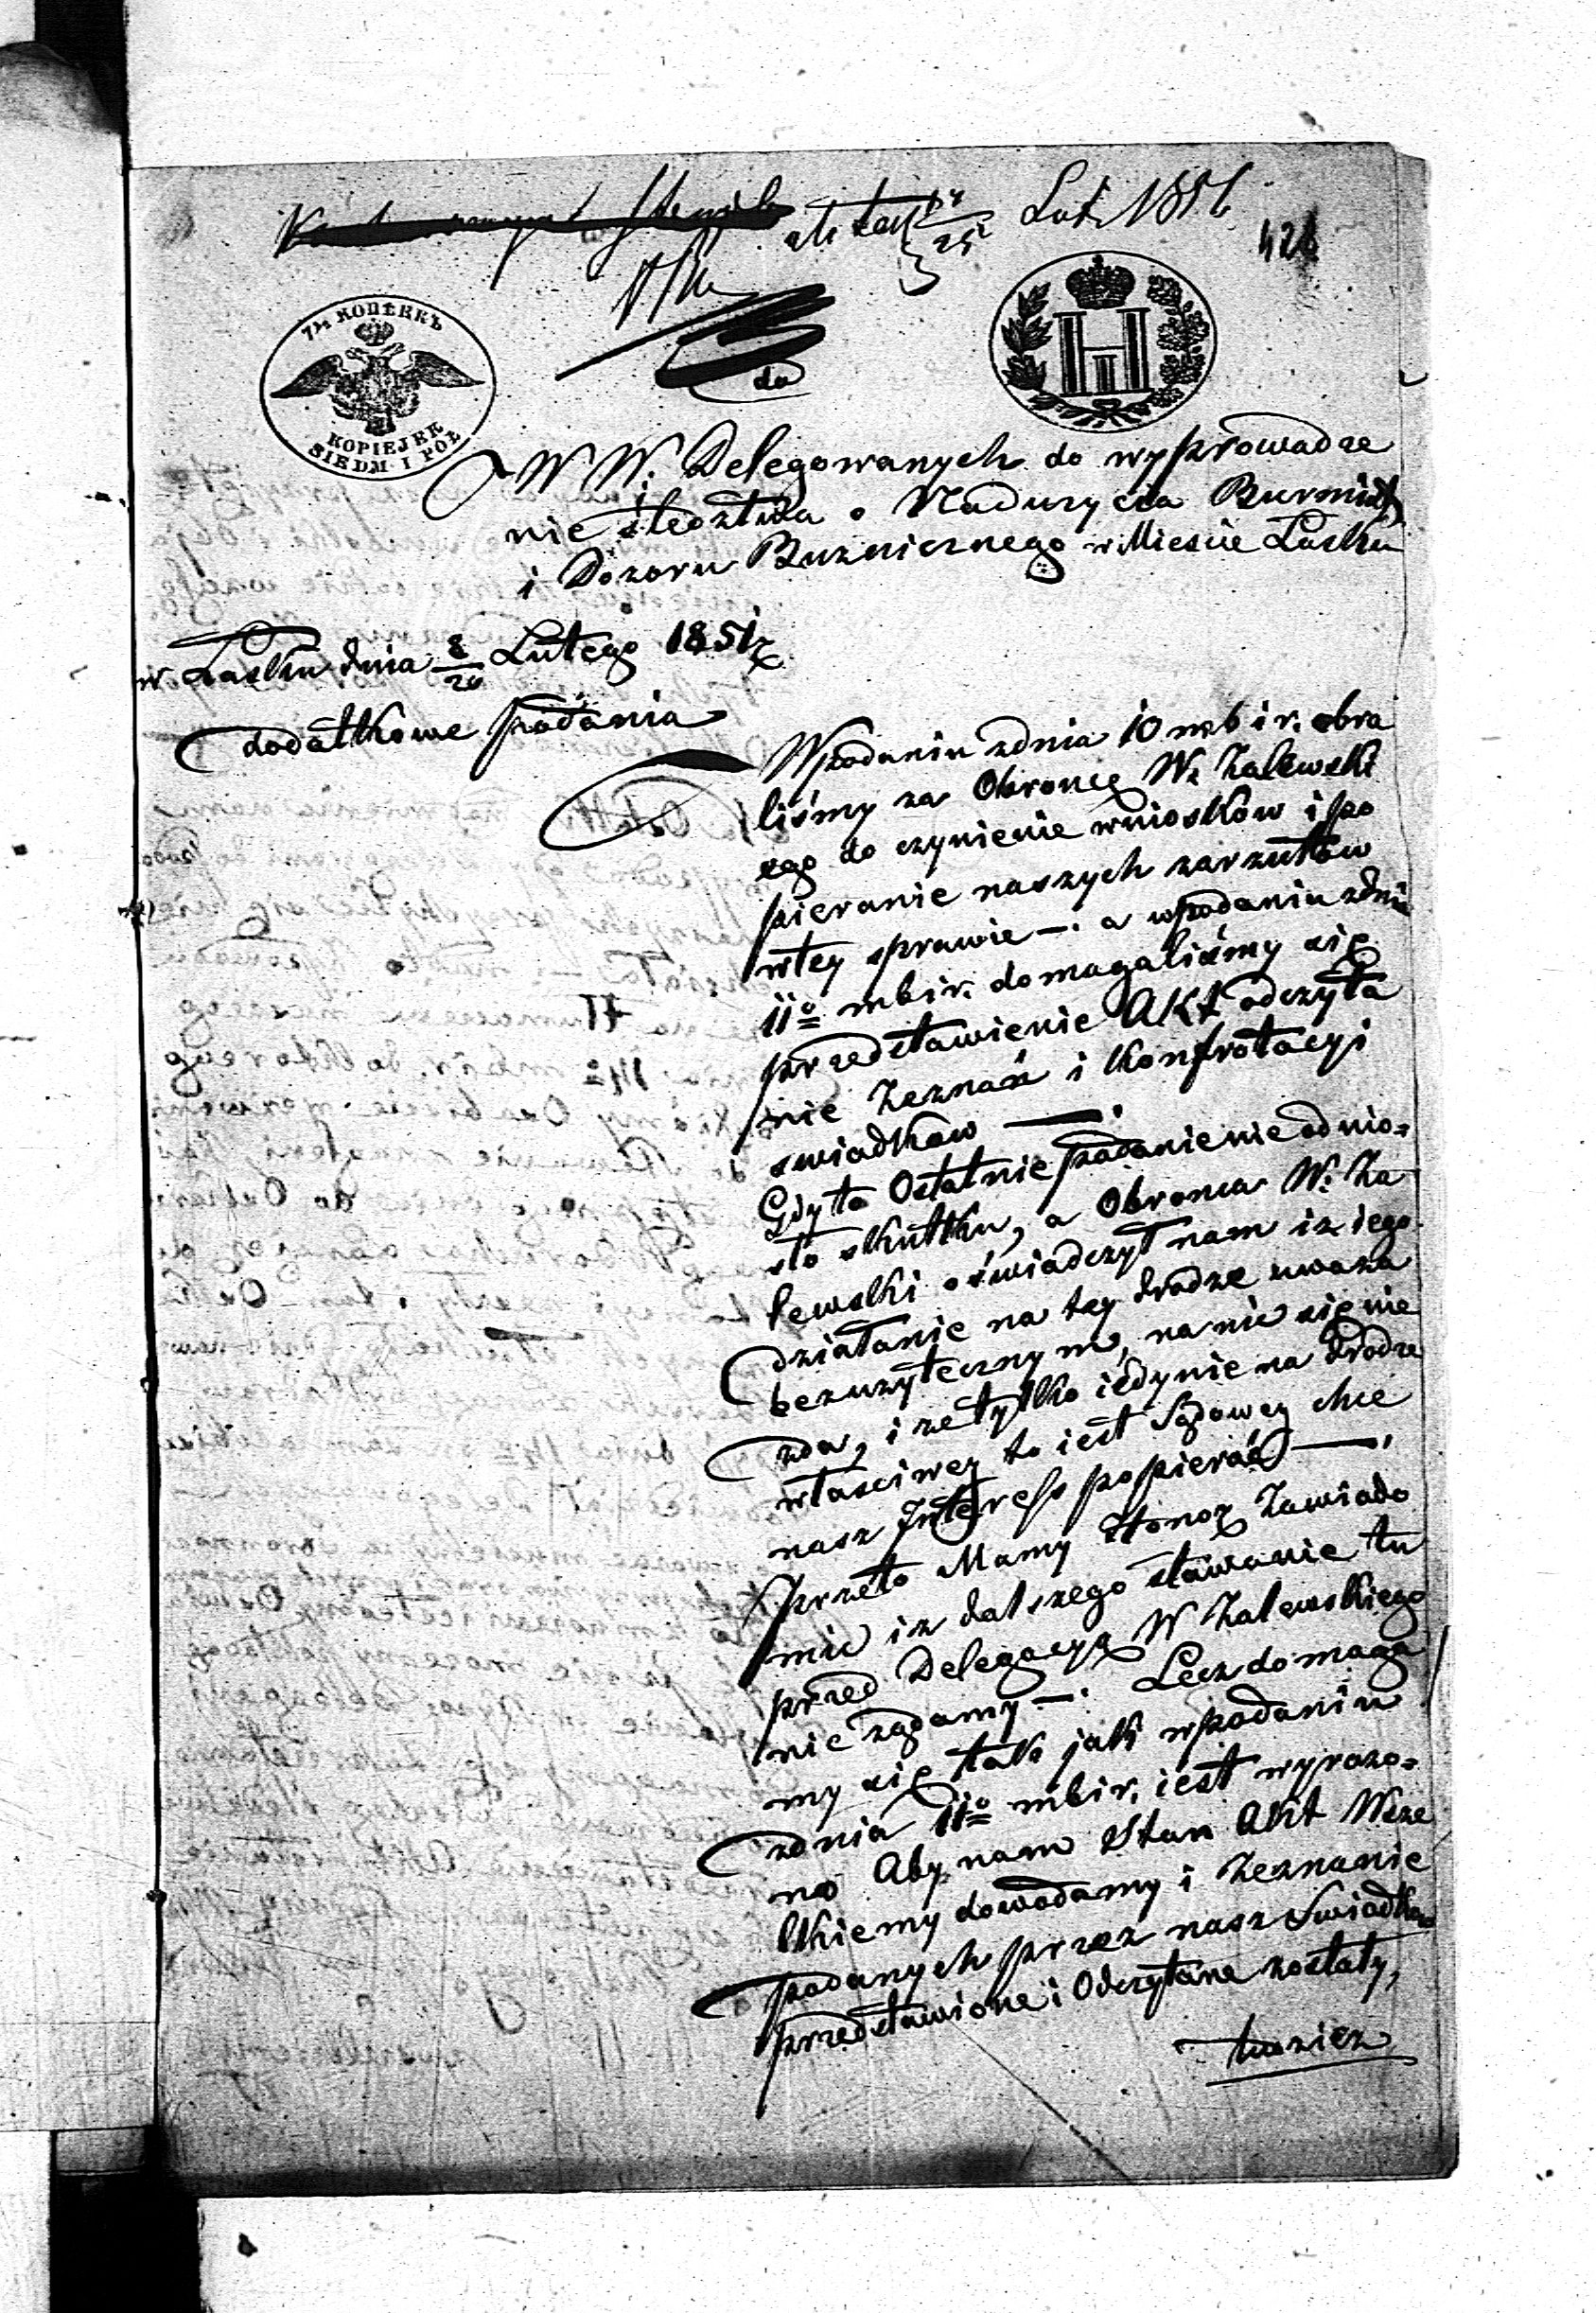 Lut. 1851
428
7½ КОПѢЕКЪ
KOPIEJEK
SIEDM I PÓŁ
do
W W. Delegowanych do wyprowadze
nie sledztwa o Nadurycia Burmist
i Dozoru Buznicznego w Miescie Lasku
w Lasku dnia 8/20 Lutego 1851 r
dodatkowe podania
Wpodaniu zdnia 10 mb i r. obra
liśmy za Obroncę W. Zalewski
ego do czynienie wniosków i po
pieranie naszych zarzutów
wtey sprawie —. a wpodaniu zdnia
11º mbir. domagaliśmy się
przedstawienie Akt odczyta
nie Zeznań i Konfrotacyi
swiadkow —.
Gdy to Ostatnie podanie nie odnio=
sło skutku, a Obronca W. Za
lewski oświadczył nam iz iego
działanie na tey drodze uwaza
bezuzytecznym, na nic się nie
zda, i ze tylko iedynie na drodze
własciwey to iest Sądowey chce
nasz Interess popierać —.
przeto Mamy Honor Zawiado
mic iz dalszego stawanie tu
przed Delegacyą W Zalewskiego
nie ządamy —. Lecz domaga
my się tak jak wpodaniu
zdnia 11º mbir. iest wyrazo=
no Aby nam Stan Akt Wsze
lkiemy dowodamy i Zeznanie
podanych przez nasz Swiadkow
przedstawione i Odczytane zostały,
tudziez